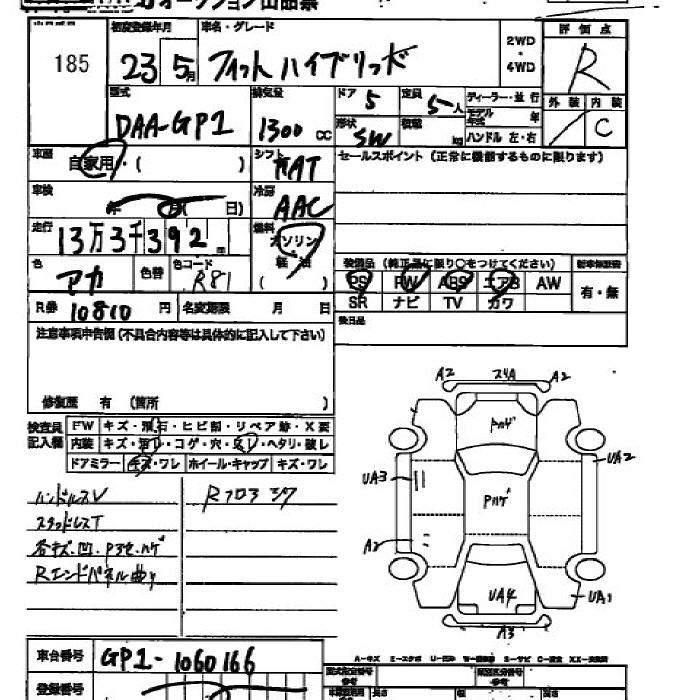 オークション出品票
185
初度登録年月
23 5月
車名・グレード
フィットハイブリッド
2WD
・
4WD
評価点
R
型式
DAA-GP1
排気量
1300 CC
ドア 5
定員 5人
ディーラー・並行
モデル年式 年
ハンドル 左・右
形状 SW
積載 kg
外装 内装
C
車歴
自家用・( )
シフト
AT
セールスポイント (正常に機能するものに限ります)
車検
年 月( 日)
冷房
AAC
走行
13万3千392
燃料
ガソリン
軽油
( )
色
アカ
色替
色コード
R81
装備品 (純正品に限り○をつけてください)
PS PW ABS エアB AW
SR ナビ TV カワ
新車保証書
有・無
R券 10810 円
名変期限 月 日
後日品
注意事項申告欄(不具合内容等は具体的に記入して下さい)
修復歴 有 (箇所 )
検査員
記入欄
FW キズ・飛石・ヒビ割・リペア跡・X要
内装 キズ・汚レ・コゲ・穴・ヘタリ・破レ
ドアミラー キズ・ワレ ホイール・キャップ キズ・ワレ
ハンドルスV
スタッドレスT
各キズ・凹・Pヨセ・ハゲ
Rエンドパネル曲り
Rフロアシワ
A2 スリA A2
Pハゲ
UA3
UA2
Pハゲ
A2
UA4
UA1
A3
車台番号 GP1-1060166
登録番号